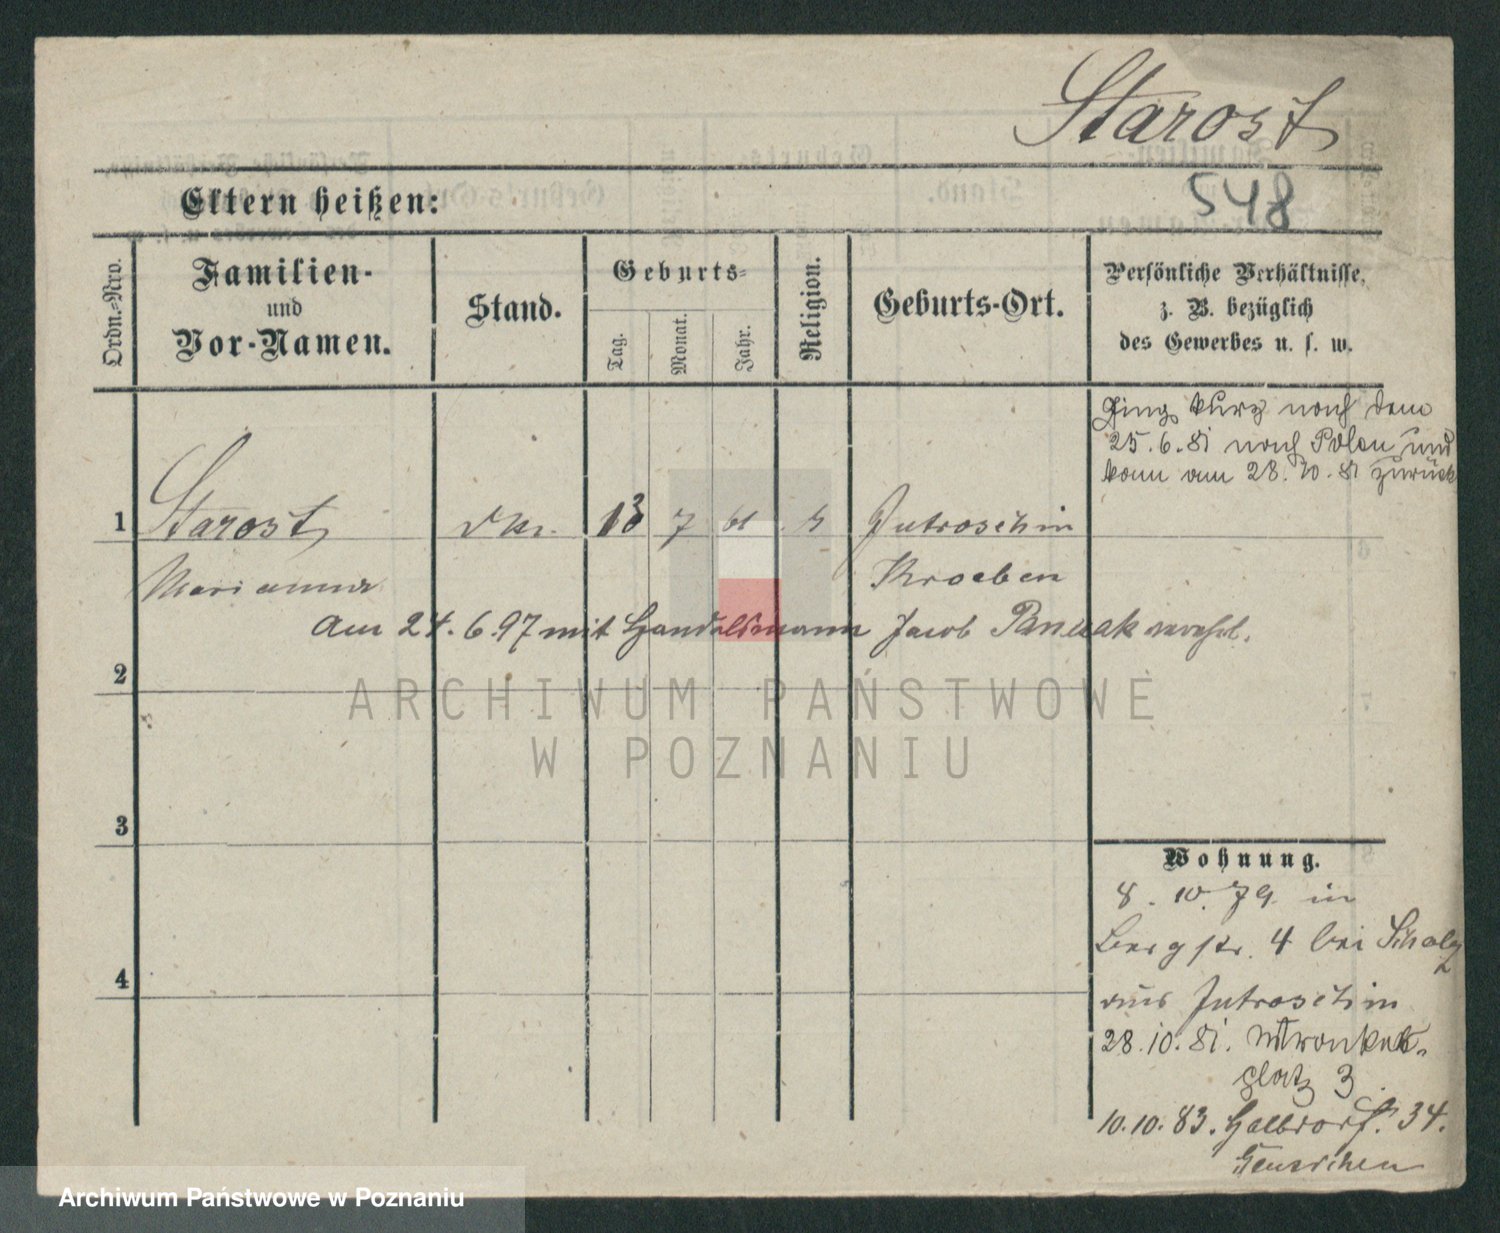 Starost
548
Eltern heißen:
Ordn.-Nro.
Familien-
und
Vor-Namen.
Stand.
Geburts-
Tag.
Monat.
Jahr.
Religion.
Geburts-Ort.
Persönliche Verhältnisse,
z. B. bezüglich
des Gewerbes u. s. w.
Ging kurz nach dem
25.6.81 nach Polen und
kam am 28.10.81 zurück
1 Starost 13 7 61 Jutroschin
Marianna Kroeben
Am 24.6.97 mit Handelsmann Jacob verehel.
2
3
4
Wohnung.
8.10.79 in
Bergstr. 4 bei Scholz
aus Jutroschin
28.10.81. Wronker-
platz 3
10.10.83. Halbdorfstr. 34.
ARCHIWUM PAŃSTWOWE
W POZNANIU
Archiwum Państwowe w Poznaniu